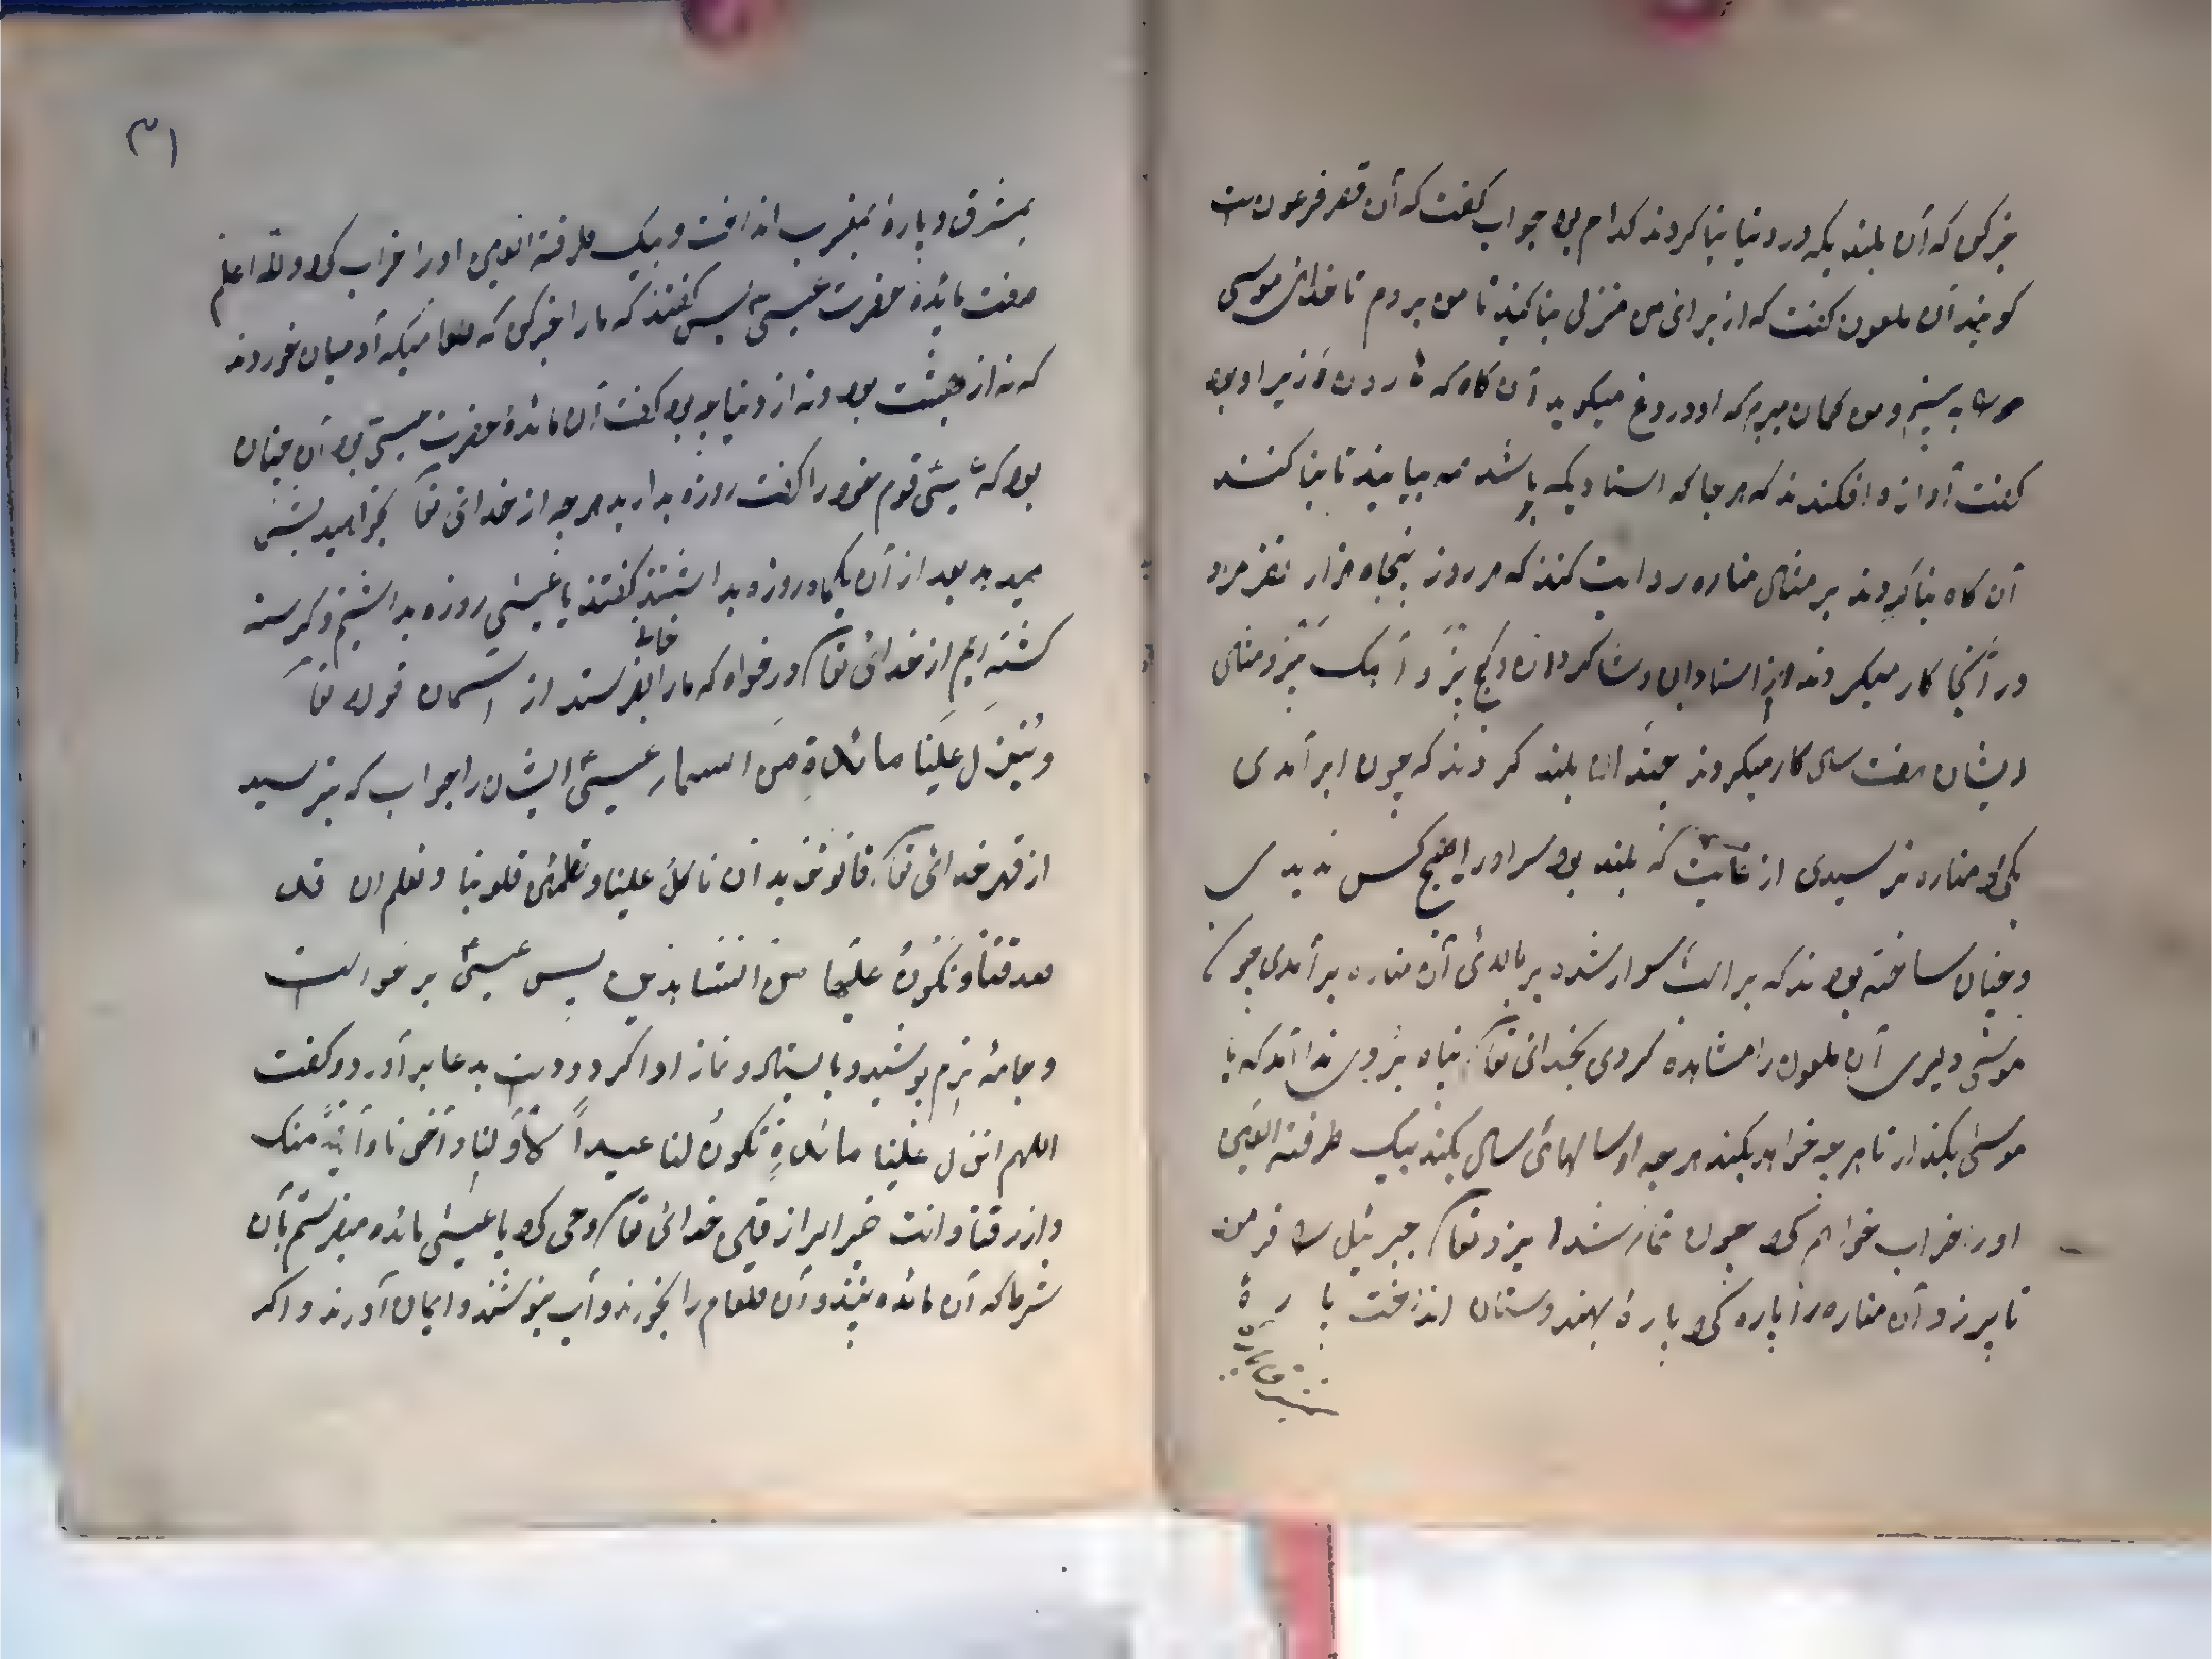 خبر کن که آن بلند یکه در دنیا بنا کردند کدام بود جواب گفت که آن قصر فرعون است
گویند آن ملعون گفت که از برای من منزلی بنا کنید تا من بروم تا خدای موسی
به بینم و من گمان میبرم که او دروغ میگوید آن گاه که وزیر او بود
گفت آوازه افکندند که هر جا که استادیکه باشد همه بیایند تا بنا کنند
آن گاه بنا کردند بر مثال مناره روایت کنند که هر روز پنجاه هزار نفر مرد
در آنجا کار میکردند از استادان و شاکردان و کج پز و آهک پز و مثل
ایشان هفت سال کار میکردند چندان بلند کردند که چون ابر آمدی
مناره نرسیدی از غایت که بلند بود سر او را هیچ کس ندیدی
و چنان ساخته بودند که بر اسب سوار شده بر بالای آن مناره بر آمدی چون
موسی دلیری آن ملعون را مشاهده کردی بخدای تعا پناه بردی ندا آمد که یا
موسی بگذار تا هر چه خواهد بکند هر چه او سالهای سال بکند بیک طرفة العین
او را خراب خواهم کرد چون تمام شد ایزد تعا جبرئیل را فرمود
تا پرزد آن مناره را پاره کرد پارهٔ بهندوستان انداخت پارهٔ
بمشرق و پارهٔ بمغرب انداخت و بیک طرفة العین او را خراب کرد والله اعلم
صفت مائدهٔ حضرت عیسی پس گفتند که ما را خبر کن که طعامیکه آدمیان خوردند
که نه از بهشت بود و نه از دنیا چه بود گفت آن مائدهٔ حضرت عیسی بود آن چنان
بود که عیسی قوم خود را گفت روزه بدارید هر چه از خدای تعا بخواهید بشما
میدهد بعد از آن یکماه روزه بداشتند گفتند یا عیسی روزه بداشتیم و گرسنه
گشته ایم از خدای تعا درخواه که ما را بفرستد از آسمان قوله تعا
و ینزل علینا مائدة من السماء عیسی ایشان را جواب که بترسید
از قهر خدای تعا قالو نرید ان ناکل علینا و تطمئن قلوبنا و نعلم ان قد
صدقتنا و نکون علیها من الشاهدین پس عیسی برخواست
و جامهٔ نرم پوشید و بایستاد و نماز ادا کرد و دست بدعا بر آورد و گفت
اللهم انزل علینا مائدة تکون لنا عیدا لاولنا و آخرنا و آیة منک
وارزقنا و انت خیر الرازقین خدای تعا وحی کرد یا عیسی مائده میفرستم بآن
شرط که آن مائده بینند و آن طعام را بخورند و آب بنوشند و ایمان آورند و اگر